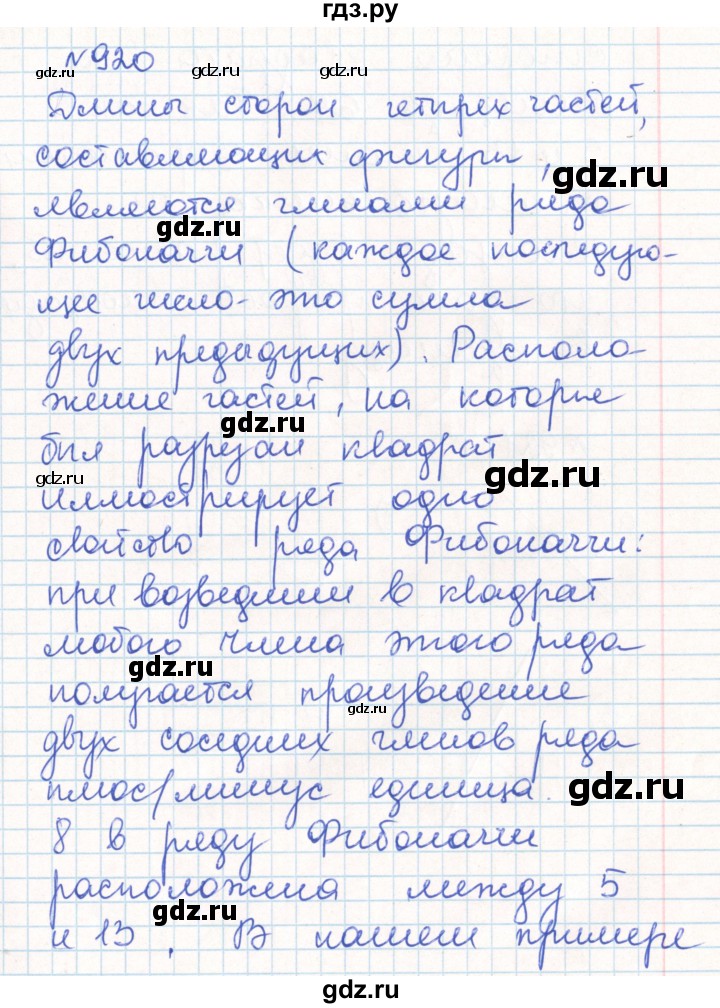 гдз.ру
№920
gdz.ru gdz.ru gdz.ru
Длины сторон четырех частей,
составляющих фигуры,
gdz.ru
являются членами ряда
Фибоначчи (каждое последую-
gdz.ru
щее число - это сумма
двух предыдущих). Располо-
жение частей, на которые
gdz.ru
был разрезан квадрат
gdz.ru gdz.ru
иллюстрирует одно
gdz.ru
свойство ряда Фибоначчи:
при возведении в квадрат
любого члена этого ряда
gdz.ru
получается произведение
gdz.ru
двух соседних членов ряда
плюс/минус единица.
gdz.ru
8 в ряду Фибоначчи
расположена между 5
gdz.ru
и 13. В нашем примере
gdz.ru